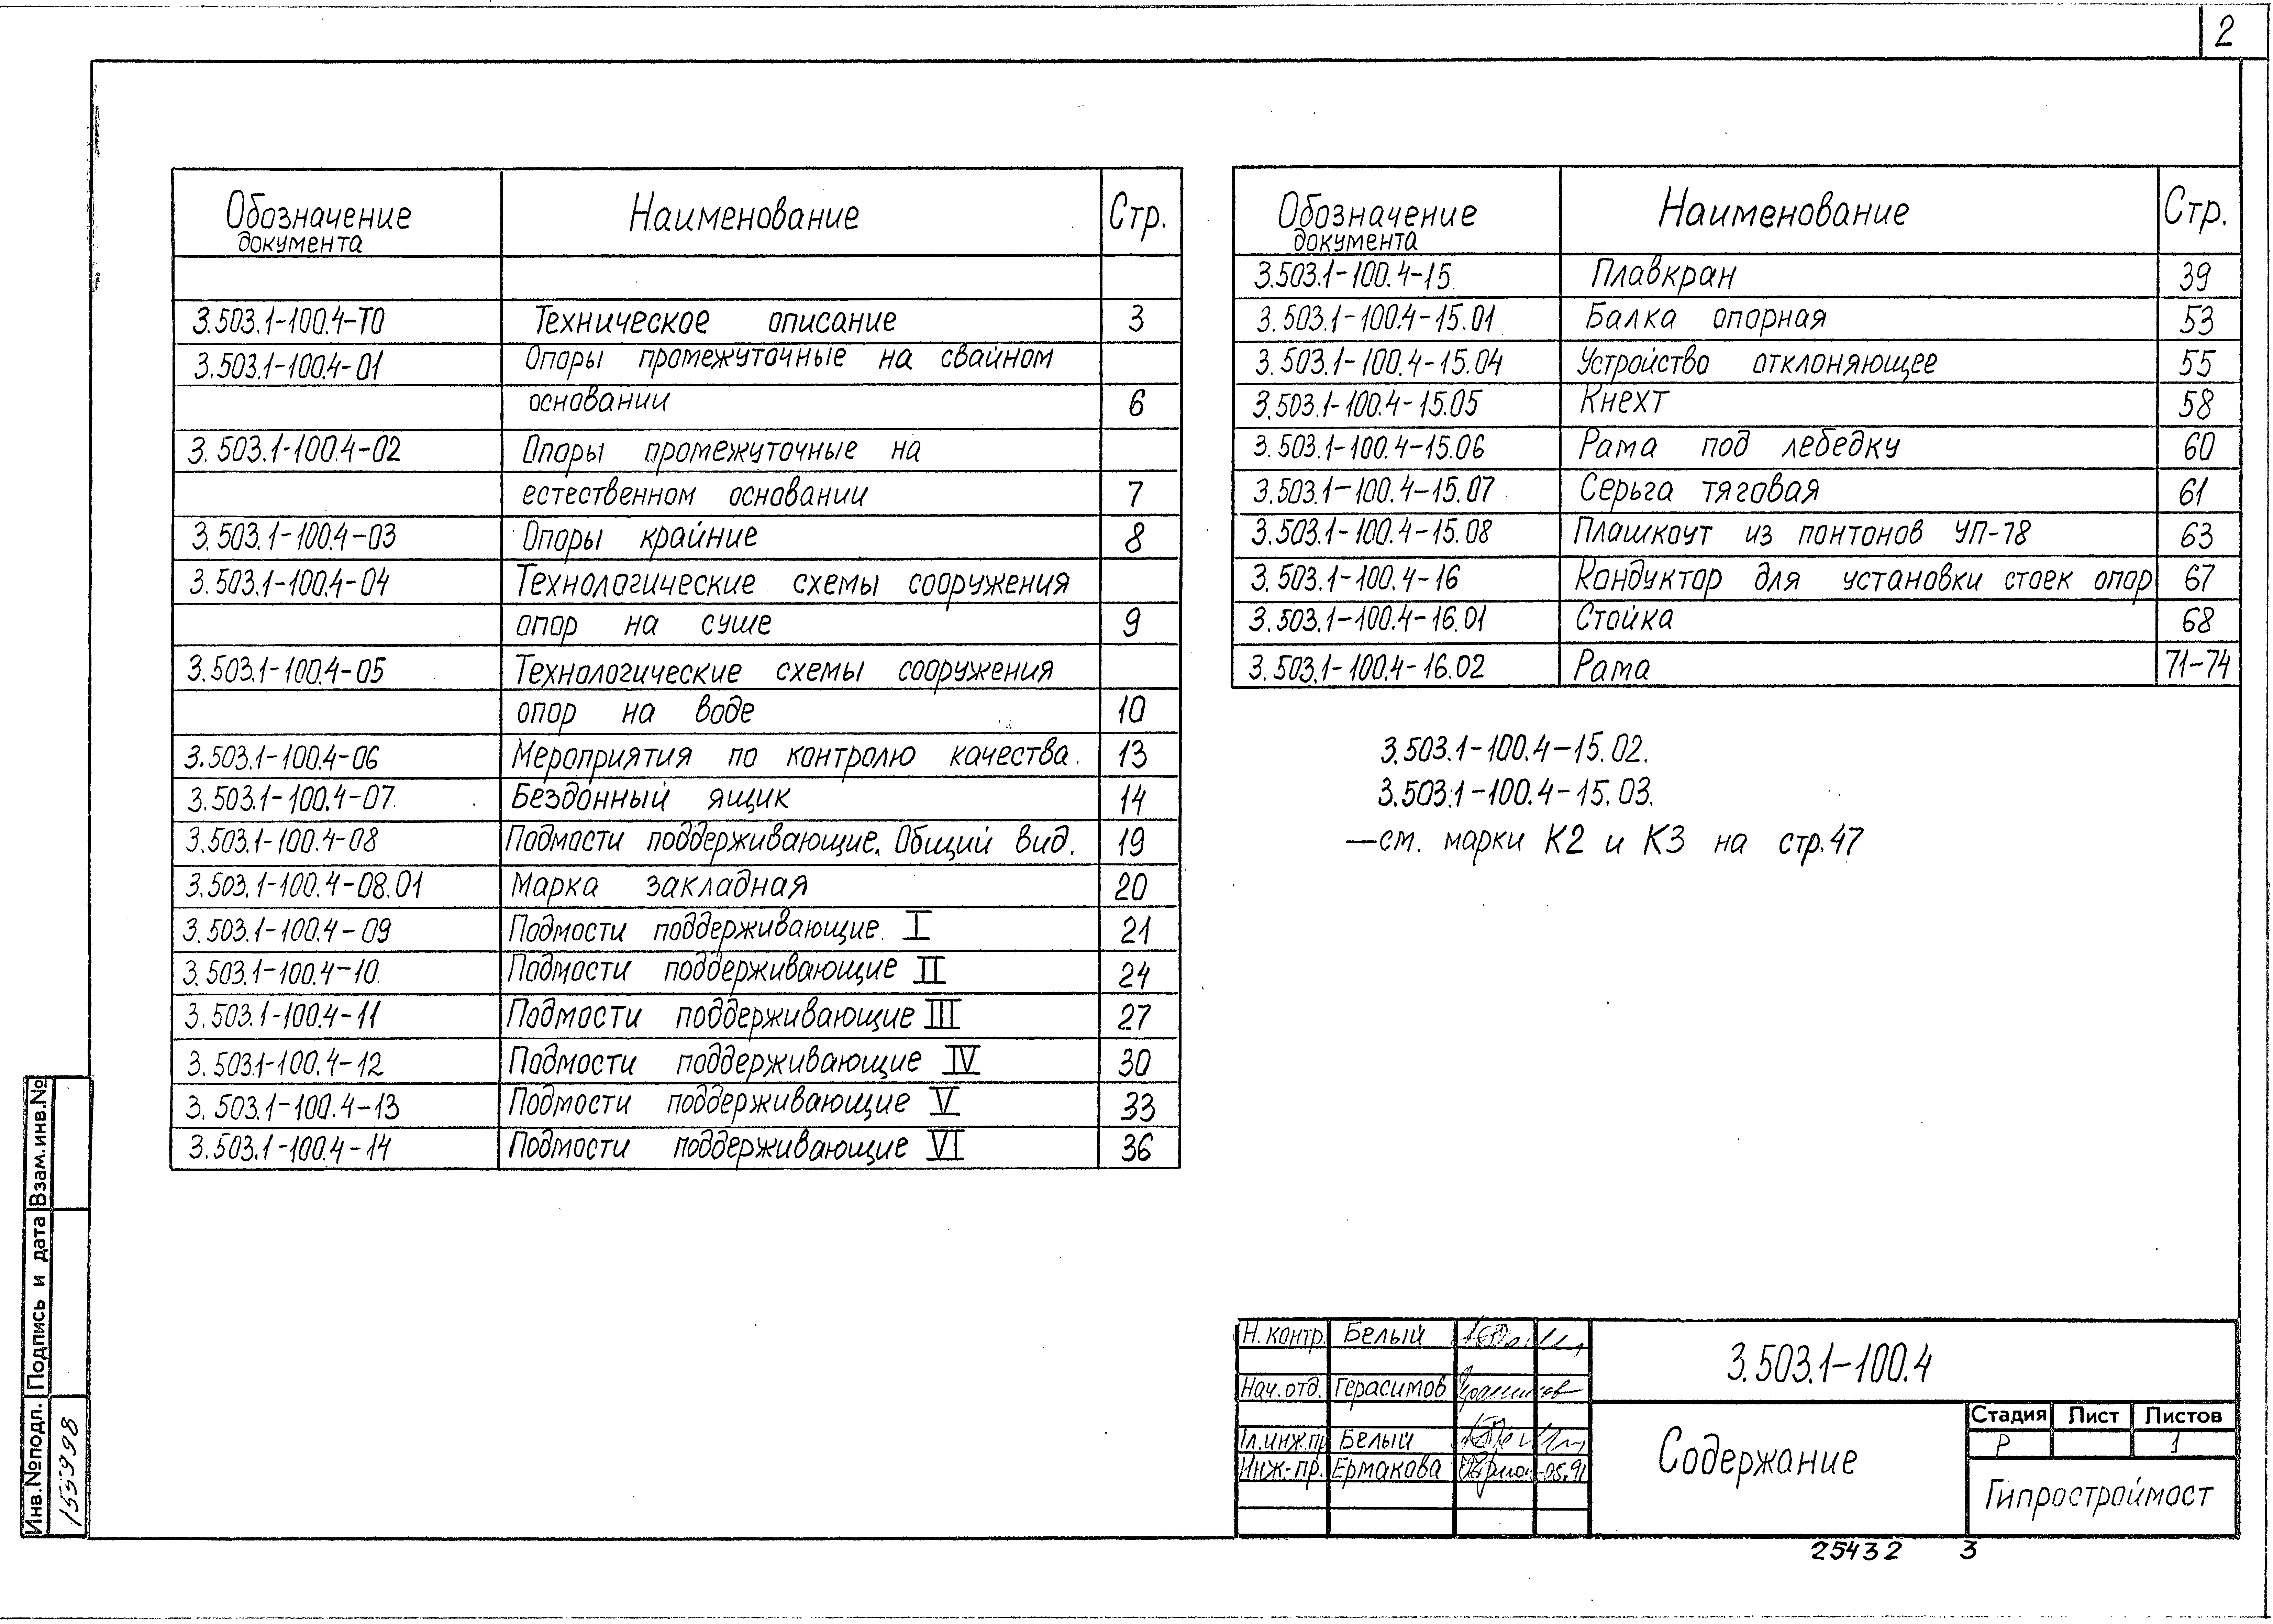 2
Обозначение документа Наименование Стр.
3.503.1-100.4-ТО Техническое описание 3
3.503.1-100.4-01 Опоры промежуточные на свайном
основании 6
3.503.1-100.4-02 Опоры промежуточные на
естественном основании 7
3.503.1-100.4-03 Опоры крайние 8
3.503.1-100.4-04 Технологические схемы сооружения
опор на суше 9
3.503.1-100.4-05 Технологические схемы сооружения
опор на воде 10
3.503.1-100.4-06 Мероприятия по контролю качества. 13
3.503.1-100.4-07 Бездонный ящик 14
3.503.1-100.4-08 Подмости поддерживающие. Общий вид. 19
3.503.1-100.4-08.01 Марка закладная 20
3.503.1-100.4-09 Подмости поддерживающие I 21
3.503.1-100.4-10 Подмости поддерживающие II 24
3.503.1-100.4-11 Подмости поддерживающие III 27
3.503.1-100.4-12 Подмости поддерживающие IV 30
3.503.1-100.4-13 Подмости поддерживающие V 33
3.503.1-100.4-14 Подмости поддерживающие VI 36
Обозначение документа Наименование Стр.
3.503.1-100.4-15 Плавкран 39
3.503.1-100.4-15.01 Балка опорная 53
3.503.1-100.4-15.04 Устройство отклоняющее 55
3.503.1-100.4-15.05 Кнехт 58
3.503.1-100.4-15.06 Рама под лебедку 60
3.503.1-100.4-15.07 Серьга тяговая 61
3.503.1-100.4-15.08 Плашкоут из понтонов УП-78 63
3.503.1-100.4-16 Кондуктор для установки стоек опор 67
3.503.1-100.4-16.01 Стойка 68
3.503.1-100.4-16.02 Рама 71-74
3.503.1-100.4-15.02.
3.503.1-100.4-15.03.
—см. марки К2 и К3 на стр.47
Н. контр. Белый
Нач. отд. Герасимов
Гл.инж.пр Белый
Инж.-пр. Ермакова 05.91
3.503.1-100.4
Содержание
Стадия Лист Листов
Р 1
Гипростроймост
25432 3
Инв.№подл. Подпись и дата Взам.инв.№
155998